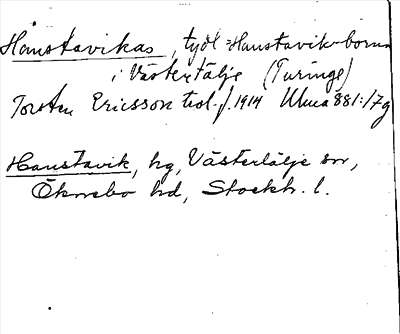 Hanstavikas, tydl = Hanstavik-borna
i Västertälje (Turinge)
Torsten Ericsson tid. f. 1914 Ulma 881:17g
Hanstavik, hg, Västertälje sn,
Öknebo hd, Stockh. l.